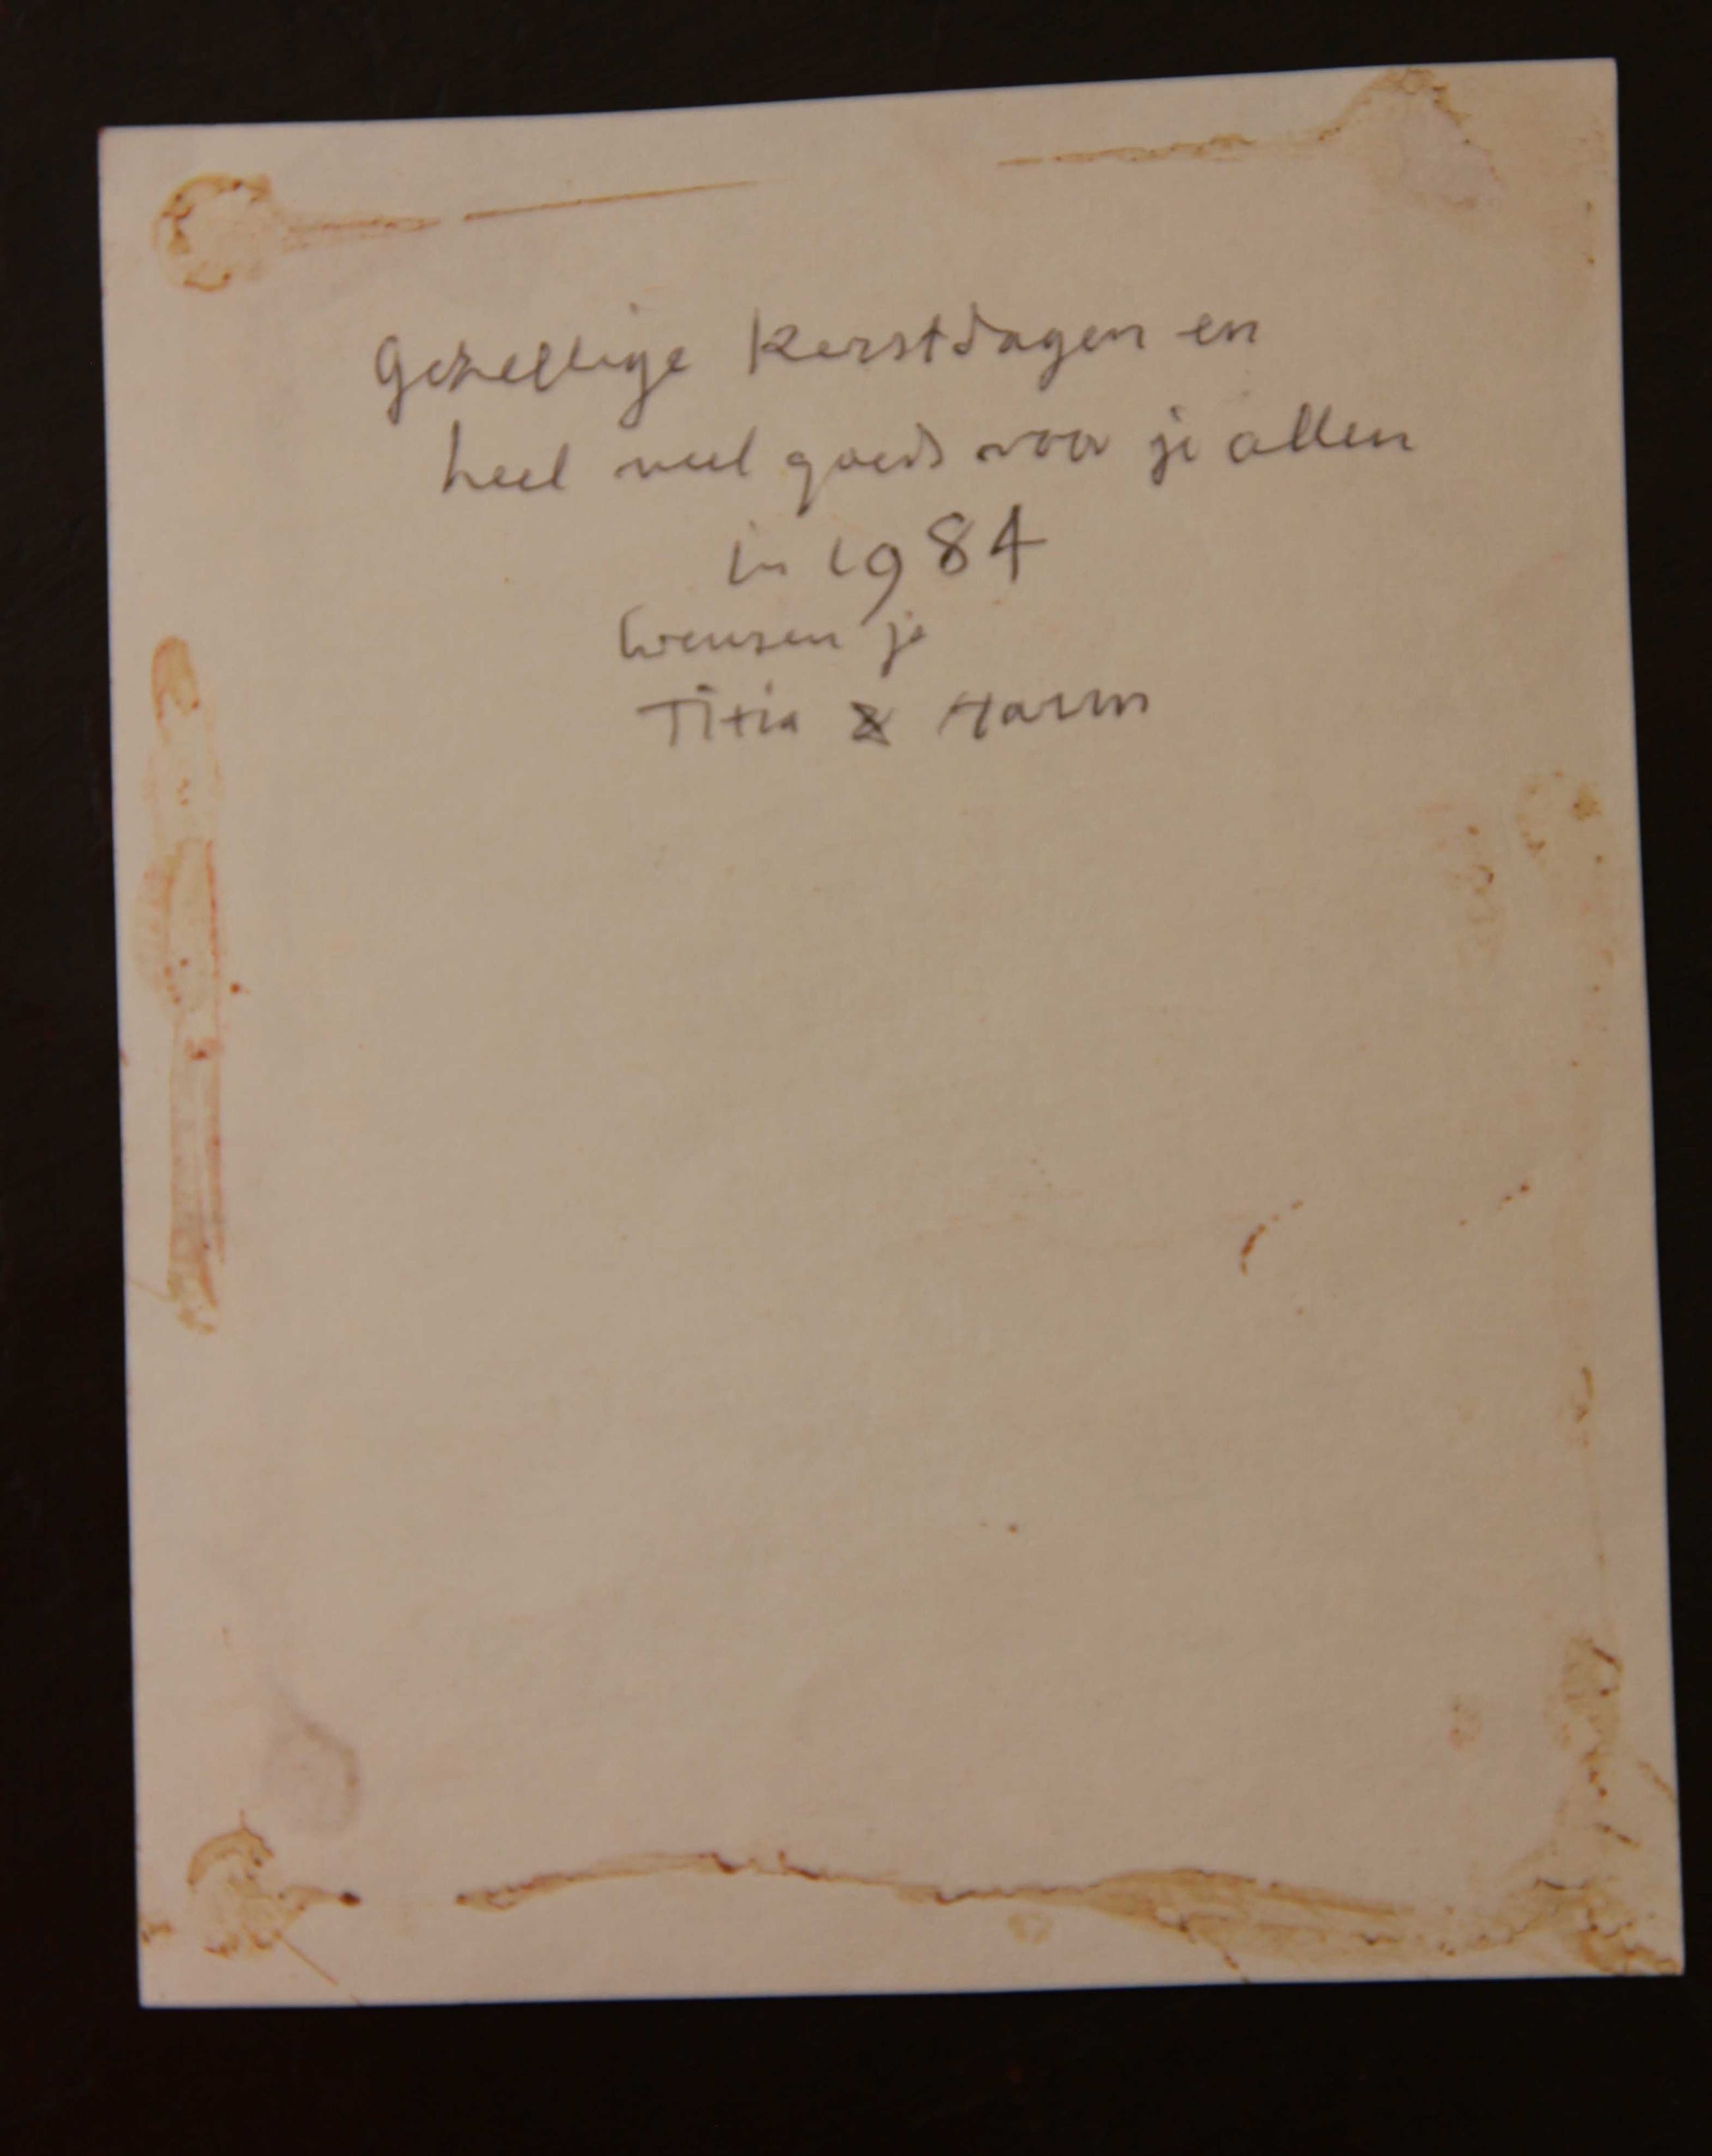 Gezellige Kerstdagen en
heel veel goeds voor je allen
in 1984
wensen je
Titia & Harm